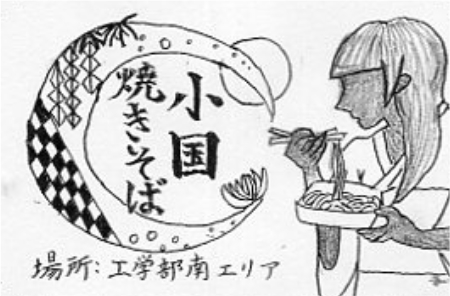 小国
焼きそば
場所:工学部南エリア